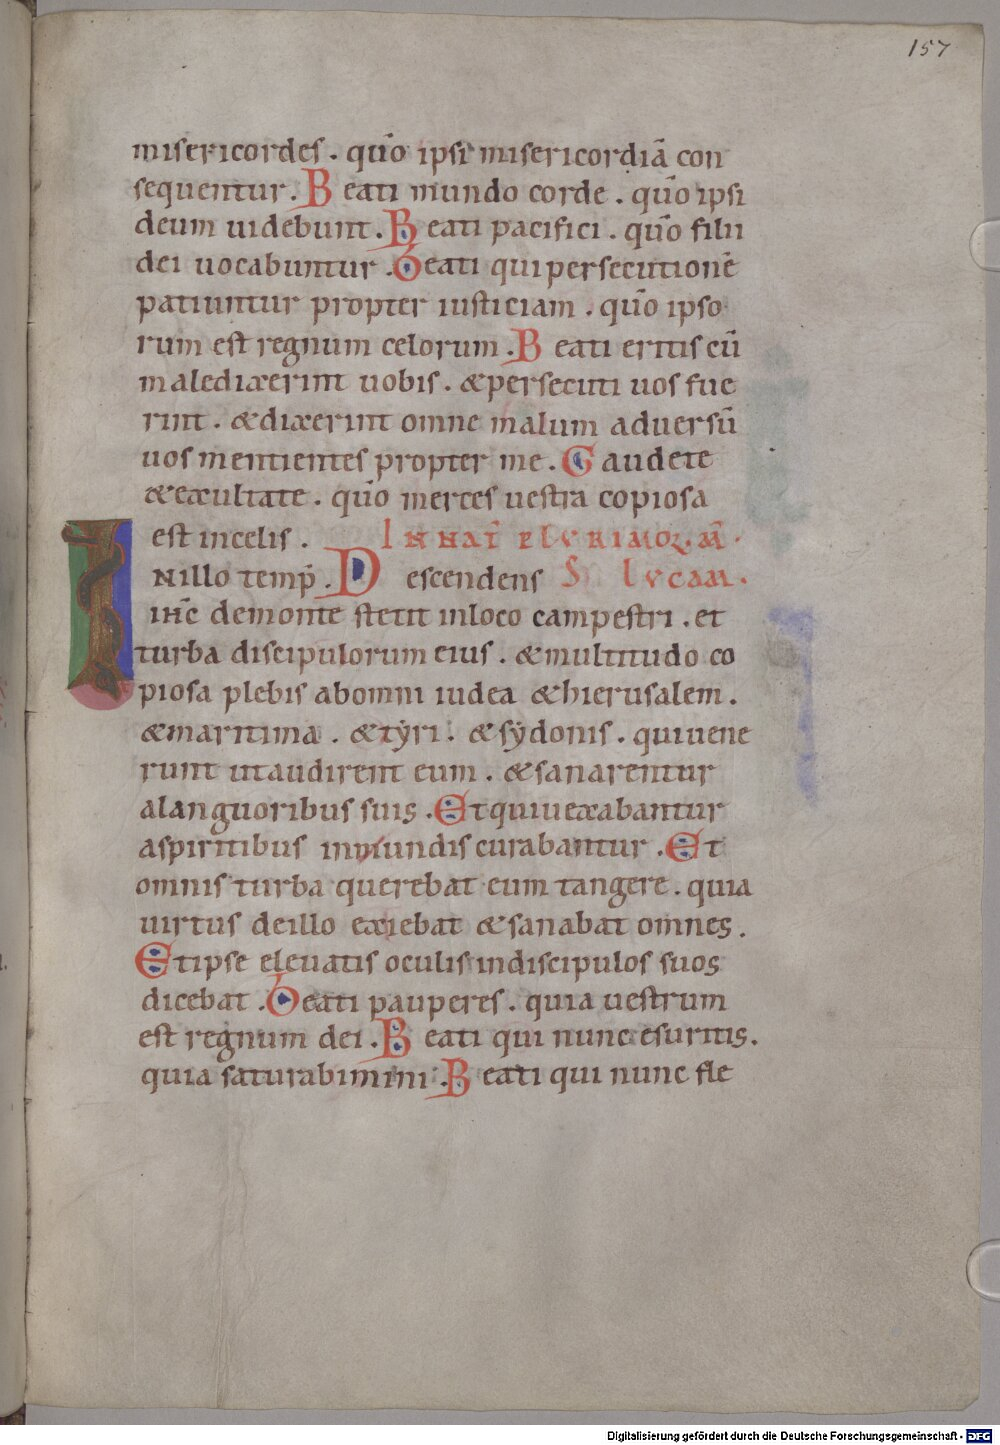 157
misericordes . quō ipsi misericordiā con
sequentur . Beati mundo corde . quō ipsi
deum uidebunt . Beati pacifici . quō filii
dei uocabuntur . Beati qui persecutionē
patiuntur propter iusticiam . quō ipso
rum est regnum celorum . Beati eritis cū
maledixerint uobis . & persecuti uos fue
rint . & dixerint omne malum aduersū
uos mentientes propter me . Gaudete
& exultate . quō merces uestra copiosa
est incelis . In nat̄ plurimoꝝ m̄ .
INillo temp̄ . Descendens S Lucam .
ihc̄ demonte stetit inloco campestri . et
turba discipulorum eius . & multitudo co
piosa plebis abomni iudea & hierusalem .
& maritima . & tẏri . & sẏdonis . qui uene
runt ut audirent eum . & sanarentur
alanguoribus suis . Et qui uexabantur
aspiritibus inmundis curabantur . Et
omnis turba querebat eum tangere . quia
uirtus deillo exiebat & sanabat omnes .
Et ipse eleuatis oculis indiscipulos suos
dicebat . Beati pauperes . quia uestrum
est regnum dei . Beati qui nunc esuritis .
quia saturabimini . Beati qui nunc fle
Digitalisierung gefördert durch die Deutsche Forschungsgemeinschaft - DFG